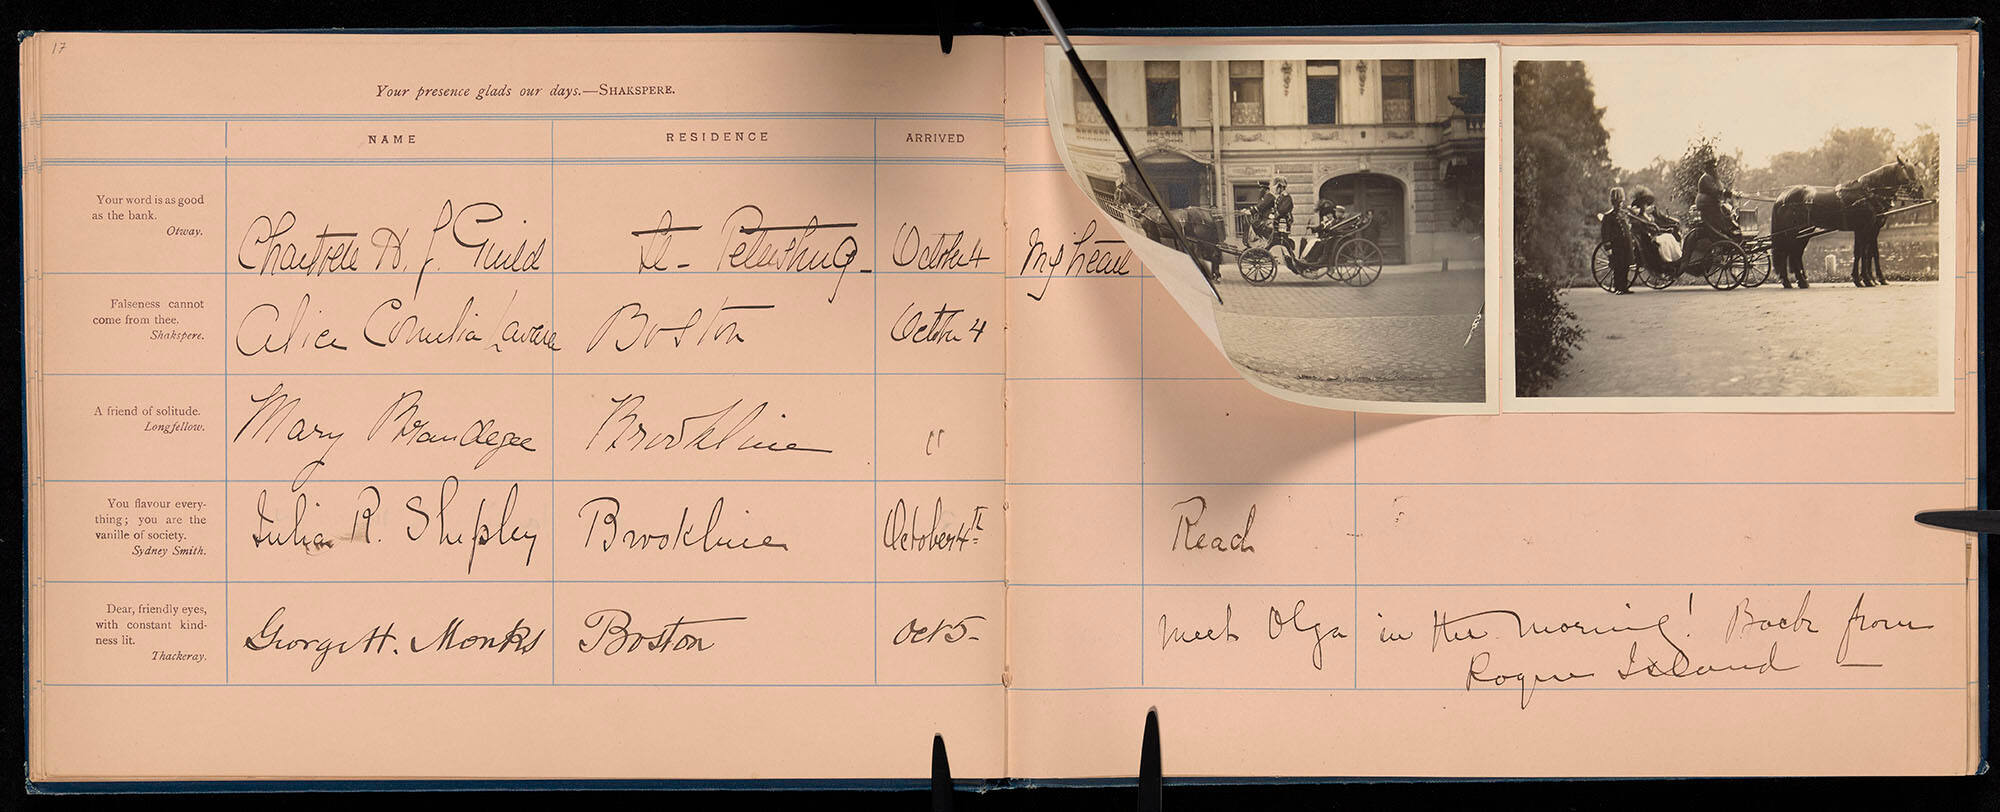 17
Your presence glads our days.—SHAKSPERE.
NAME RESIDENCE ARRIVED
Your word is as good
as the bank.
Otway.
Charlotte H. J. Guild St- Petersburg- October 4 My heart
Falseness cannot
come from thee.
Shakspere.
Alice Cornelia Boston October 4
A friend of solitude.
Longfellow.
Mary Brandegee Brookline "
You flavour every-
thing; you are the
vanille of society.
Sydney Smith.
Julia R. Shipley Brookline October 4th Read
Dear, friendly eyes,
with constant kind-
ness lit.
Thackeray.
George H. Monks Boston Oct 5- Meet Olga in the morning! Back from
Rogue Island